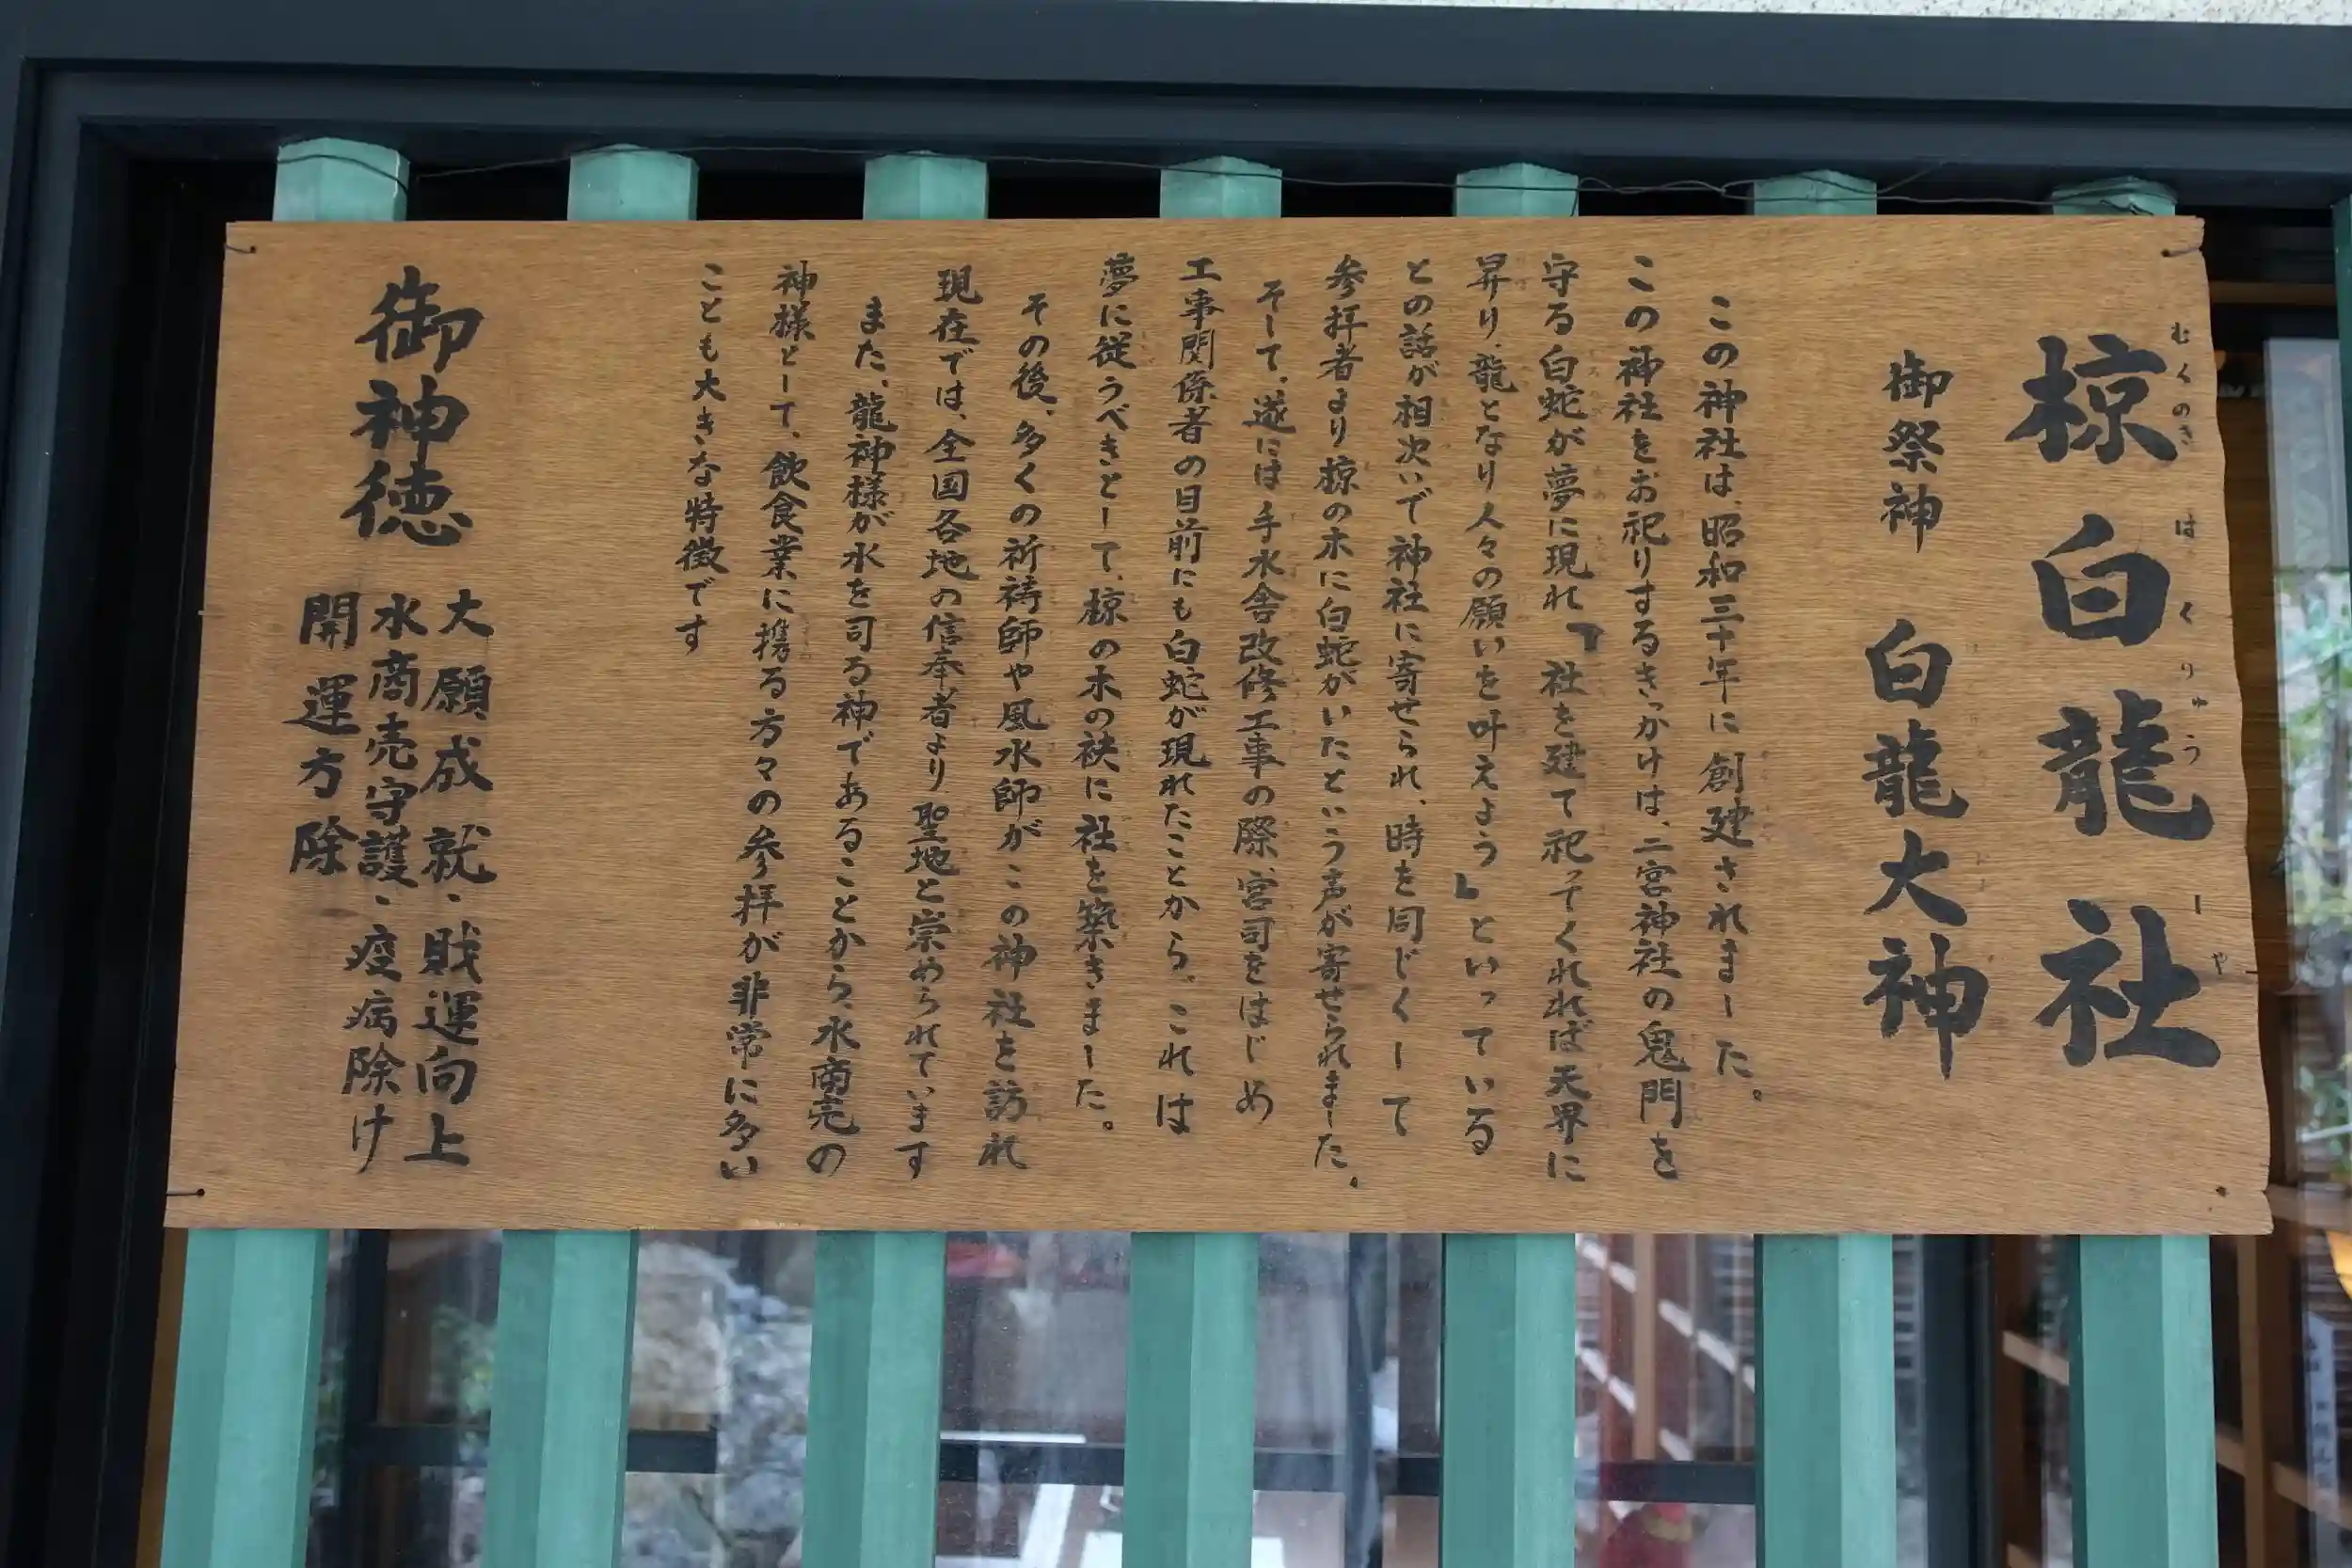 椋白龍社
むくのきはくりゅうしや
御祭神 白龍大神
この神社は、昭和三十年に創建されました。
この神社をお祀りするきっかけは、二宮神社の鬼門を
守る白蛇が夢に現れ「社を建て祀ってくれれば天界に
昇り、龍となり人々の願いを叶えよう」といっている
との話が相次いで神社に寄せられ、時を同じくして
参拝者より椋の木に白蛇がいたという声が寄せられました。
そして、遂には手水舎改修工事の際、宮司をはじめ
工事関係者の目前にも白蛇が現れたことから、これは
夢に従うべきとして、椋の木の袂に社を築きました。
その後、多くの祈祷師や風水師がこの神社を訪れ
現在では、全国各地の信奉者より聖地と崇められています
また、龍神様が水を司る神であることから、水商売の
神様として、飲食業に携る方々の参拝が非常に多い
ことも大きな特徴です
御神徳
大願成就・財運向上
水商売守護・疫病除け
開運方除